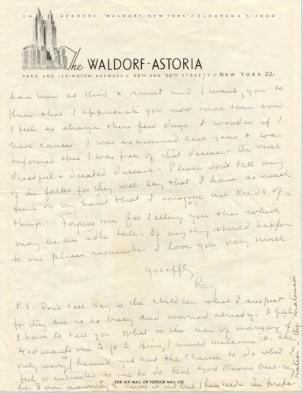 CABLE ADDRESS, "WALDORF, NEW YORK" / ELDORADO 5-3000
The WALDORF-ASTORIA
PARK AND LEXINGTON AVENUES • 49TH AND 50TH STREETS • NEW YORK 22
have been so kind & sweet and I want you to
know that I appreciate you now more than ever.
I feel so strange these few days. I wonder if I
have cancer. I was examined last year & was
informed that I was free of that disease - the most
dreadful & dreaded disease. Please don't tell any
of the folks for they will say that I have so much
time on my hand that I imagine all kinds of
things. Forgive me for telling you this which
may be an idle talk. If anything should happen
to me please remember I love you very much
Reg
P.S. Don't tell Ray or the children what I suspect
for they are so busy and worried already. I
I have to tell you. What is the use of worrying if
God wants me to go to Him, I would welcome it. The
only worry I have not had the chance to do what I
feel
FOR AIR MAIL OR FOREIGN MAIL USE